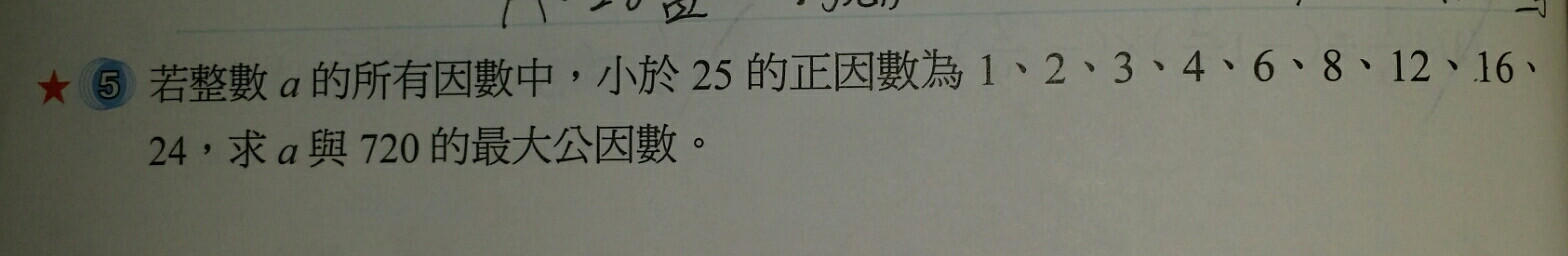 ★ 5 若整數 a 的所有因數中，小於 25 的正因數為 1、2、3、4、6、8、12、16、
24，求 a 與 720 的最大公因數。